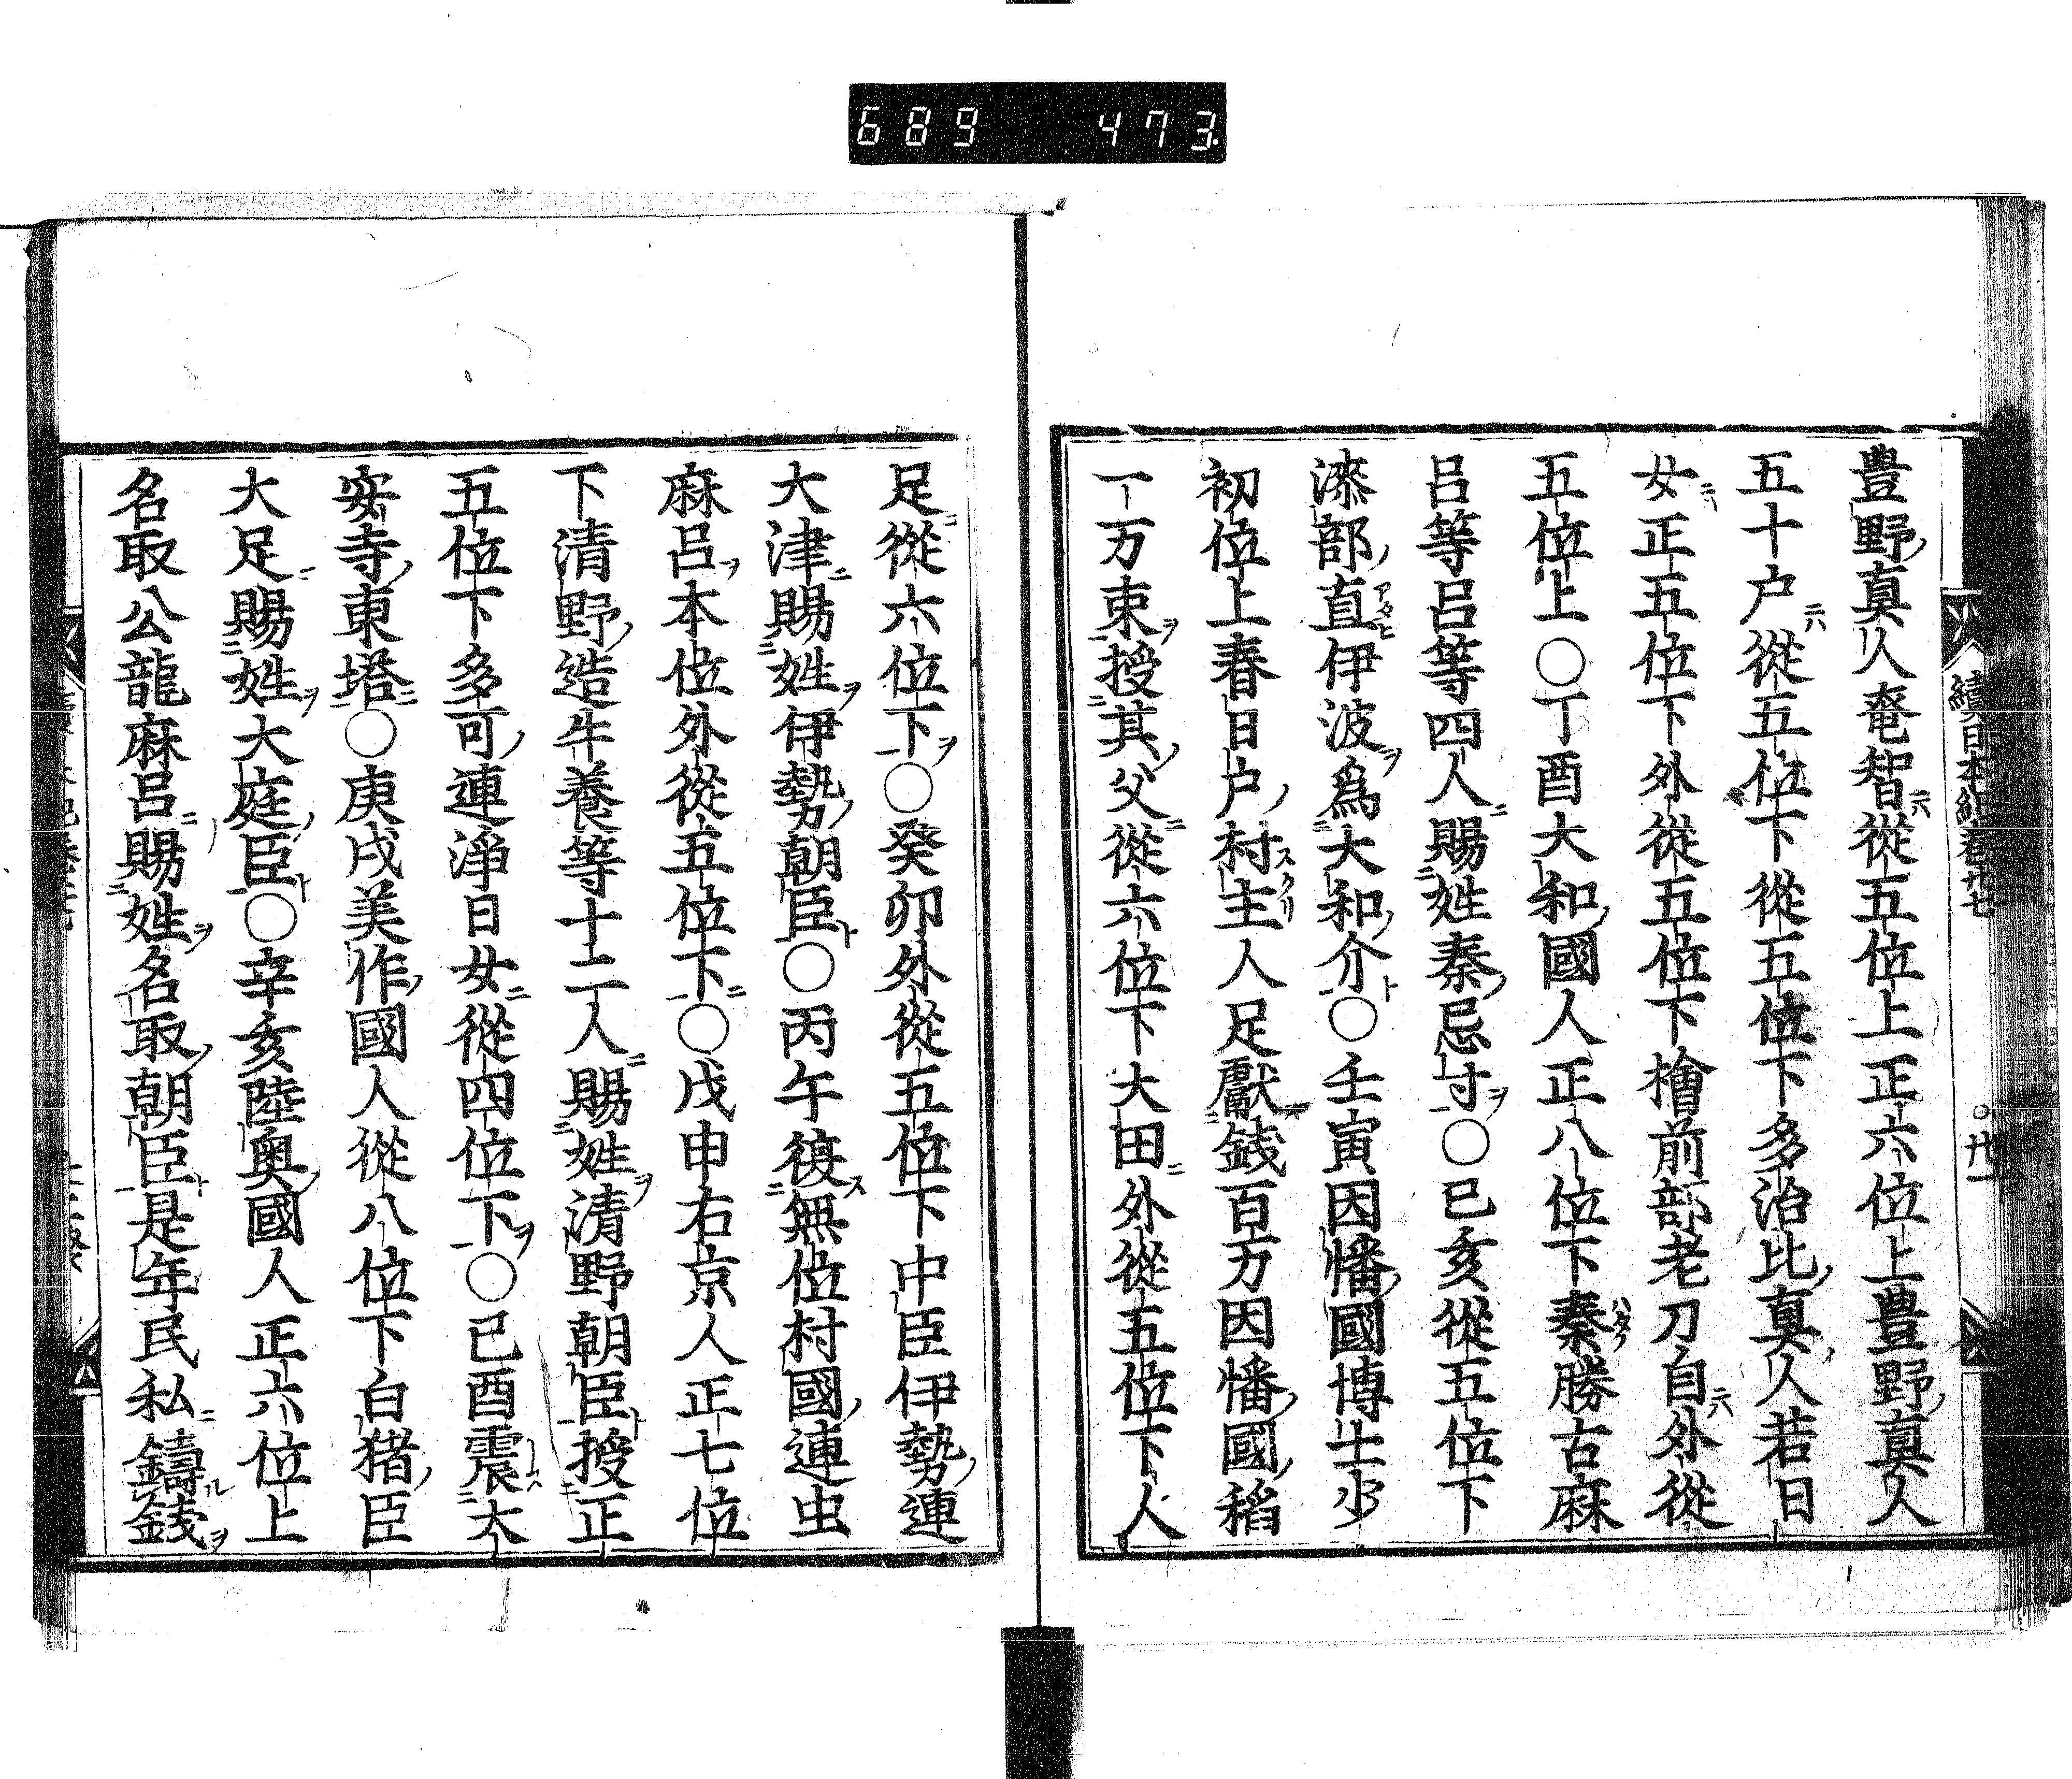 689 473
續日本紀卷廿七
廿一
豊野真人奄智從五位上正六位上豊野真人
五十户從五位下從五位下多治比真人若日
女正五位下外從五位下檜前部老刀自外從
五位上○丁酉大和國人正八位下秦勝古麻
吕等吕等四人賜姓秦忌寸○已亥從五位下
漆部直伊波爲大和介○壬寅因幡國博士少
初位上春日户村主人足獻錢百万因幡國稻
一万束授其父從六位下大田外從五位下人
足從六位下○癸卯外從五位下中臣伊勢連
大津賜姓伊勢朝臣○丙午復無位村國連虫
麻吕本位外從五位下○戊申右京人正七位
下清野造牛養等十二人賜姓清野朝臣授正
五位下多可連淨日女從四位下○已酉震大
安寺東塔○庚戌美作國人從八位下白猪臣
大足賜姓大庭臣○辛亥陸奥國人正六位上
名取公龍麻吕賜姓名取朝臣是年民私鑄錢